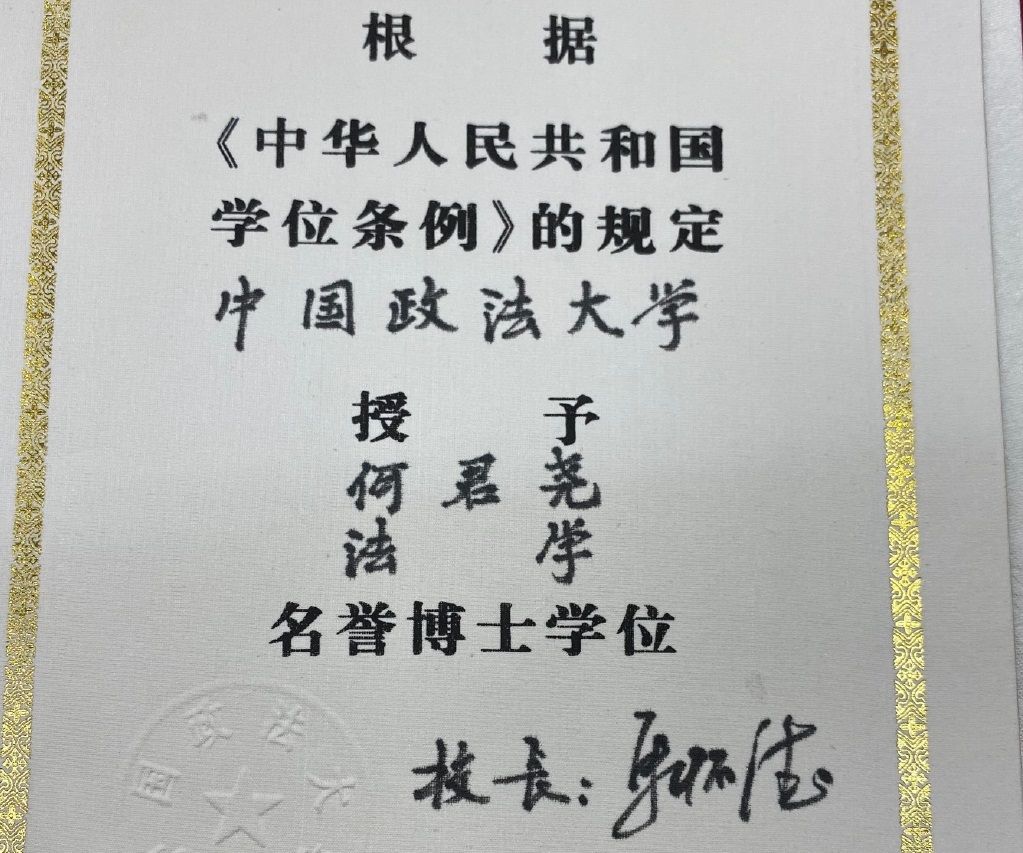 根 据
《中华人民共和国
学位条例》的规定
中国政法大学
授 予
何君尧
法 学
名誉博士学位
校长：马怀德
国 政 法 大